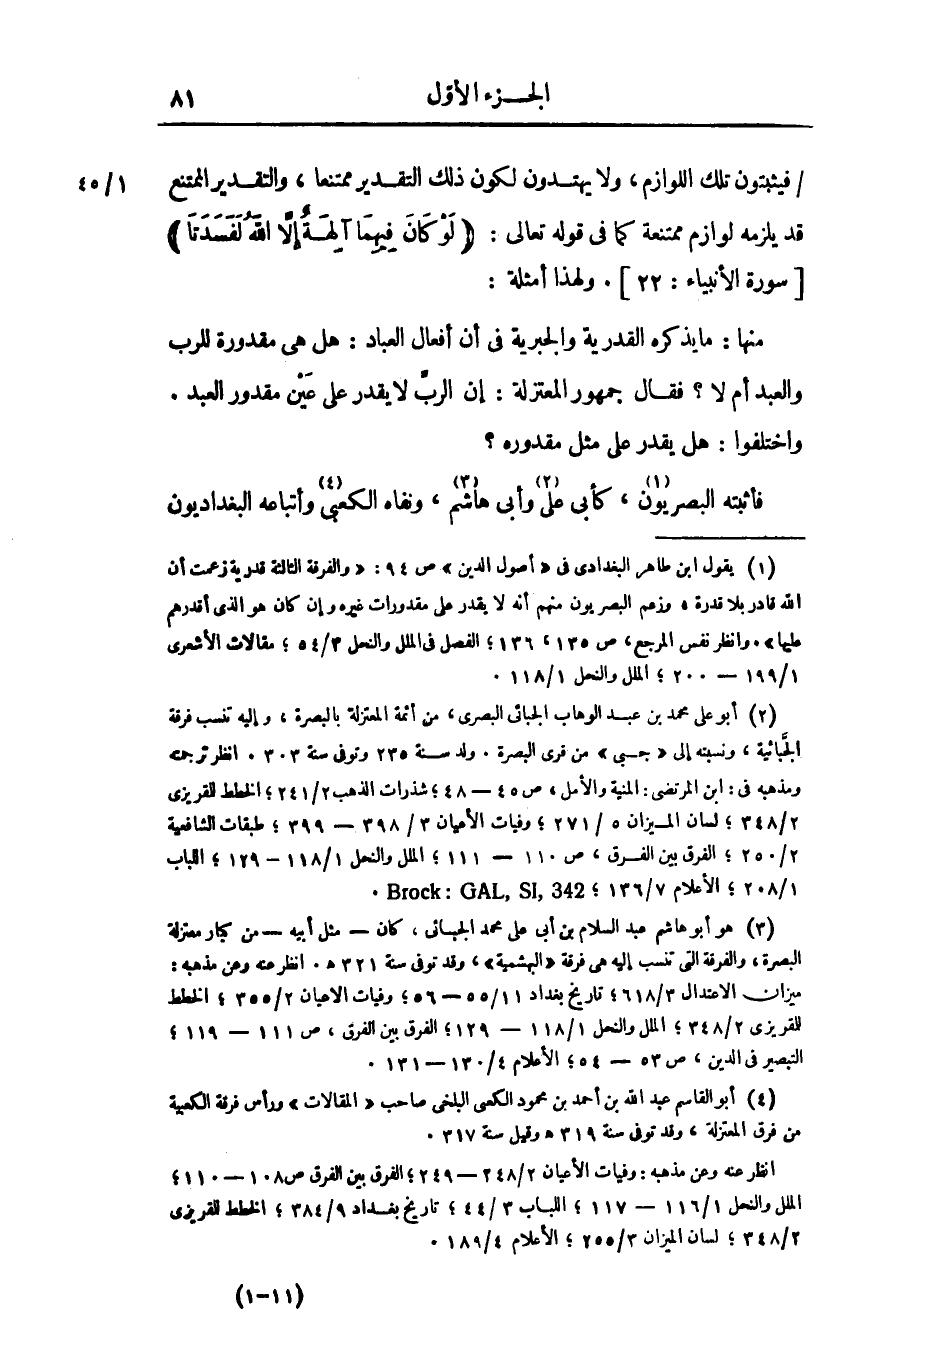 الجـــزء الأوّل ٨١
/ فيثبتون تلك اللوازم ، ولا يهتـدون لكون ذلك التقـدير ممتنعا ، والتقـدير الممتنع ٤٥/١
قد يلزمه لوازم ممتنعة كما فى قوله تعالى : ﴿ لَوْ كَانَ فِيهِمَا آلِهَـةٌ إِلَّا اللهُ لَفَسَدَتَا ﴾
[ سورة الأنبياء : ٢٢ ] . ولهذا أمثلة :
منها : مايذكره القدرية والجبرية فى أن أفعال العباد : هل هى مقدورة للرب
والعبد أم لا ؟ فقـال جمهور المعتزلة : إن الربَّ لا يقدر على عَيْن مقدور العبد .
واختلفوا : هل يقدر على مثل مقدوره ؟
فأثبته البصريون (١) ، كأبى على (٢) وأبى هاشم (٣) ، ونفاه الكعبى (٤) وأتباعه البغداديون
(١) يقول ابن طاهر البغدادى فى « أصول الدين » ص ٩٤ : « والفرقة الثالثة قدرية زعمت أن
الله قادر بلا قدرة ، وزعم البصريون منهم أنه لا يقدر على مقدورات غيره وإن كان هو الذى أقدرهم
عليها » . وانظر نفس المرجع ، ص ١٣٥ ، ١٣٦ ؛ الفصل فى الملل والنحل ٥٤/٣ ؛ مقالات الأشعرى
١٩٩/١ — ٢٠٠ ؛ الملل والنحل ١١٨/١ .
(٢) أبو على محمد بن عبـد الوهاب الجبائى البصرى ، من أئمة المعتزلة بالبصرة ، وإليه تنسب فرقة
الجُبَّائية ، ونسبته إلى « جـبى » من قرى البصرة . ولد ســنة ٢٣٥ وتوفى سنة ٣٠٣ . انظر ترجمته
ومذهبه فى : ابن المرتضى : المنية والأمل ، ص ٤٥ — ٤٨ ؛ شذرات الذهب ٢٤١/٢ ؛ الخطط للمقريزى
٣٤٨/٢ ؛ لسان المـيزان ٥ / ٢٧١ ؛ وفيات الأعيان ٣ / ٣٩٨ — ٣٩٩ ؛ طبقات الشافعية
٢٥٠/٢ ؛ الفرق بين الفـرق ، ص ١١٠ — ١١١ ؛ الملل والنحل ١١٨/١ – ١٢٩ ؛ اللباب
٢٠٨/١ ؛ الأعلام ١٣٦/٧ ؛ Brock : GAL, SI, 342 .
(٣) هو أبو هاشم عبد السلام بن أبى على محمد الجبـائى ، كان — مثل أبيه — من كبار معتزلة
البصرة ، والفرقة التى تنسب إليه هى فرقة « البهشمية » ، وقد توفى سنة ٣٢١ ه . انظر عنه وعن مذهبه :
ميزان الاعتدال ٦١٨/٣ ؛ تاريخ بغداد ٥٥/١١ — ٥٦ ؛ وفيات الاعيان ٣٥٥/٢ ؛ الخطط
للمقريزى ٣٤٨/٢ ؛ الملل والنحل ١١٨/١ — ١٢٩ ؛ الفرق بين الفرق ، ص ١١١ — ١١٩ ؛
التبصير فى الدين ، ص ٥٣ — ٥٤ ؛ الأعلام ١٣٠/٤ — ١٣١ .
(٤) أبو القاسم عبد الله بن أحمد بن محمود الكعبى البلخى صاحب « المقالات » ورأس فرقة الكعبية
من فرق المعتزلة ، وقد توفى سنة ٣١٩ ه وقيل سنة ٣١٧ .
انظر عنه وعن مذهبه : وفيات الأعيان ٢٤٨/٢ — ٢٤٩ ؛ الفرق بين الفرق ص ١٠٨ — ١١٠ ؛
الملل والنحل ١١٦/١ — ١١٧ ؛ اللبـاب ٤٤/٣ ؛ تاريخ بغـداد ٣٨٤/٩ ؛ الخطط للمقريزى
٣٤٨/٢ ؛ لسان الميزان ٢٥٥/٣ ؛ الأعلام ١٨٩/٤ .
(١١–١)